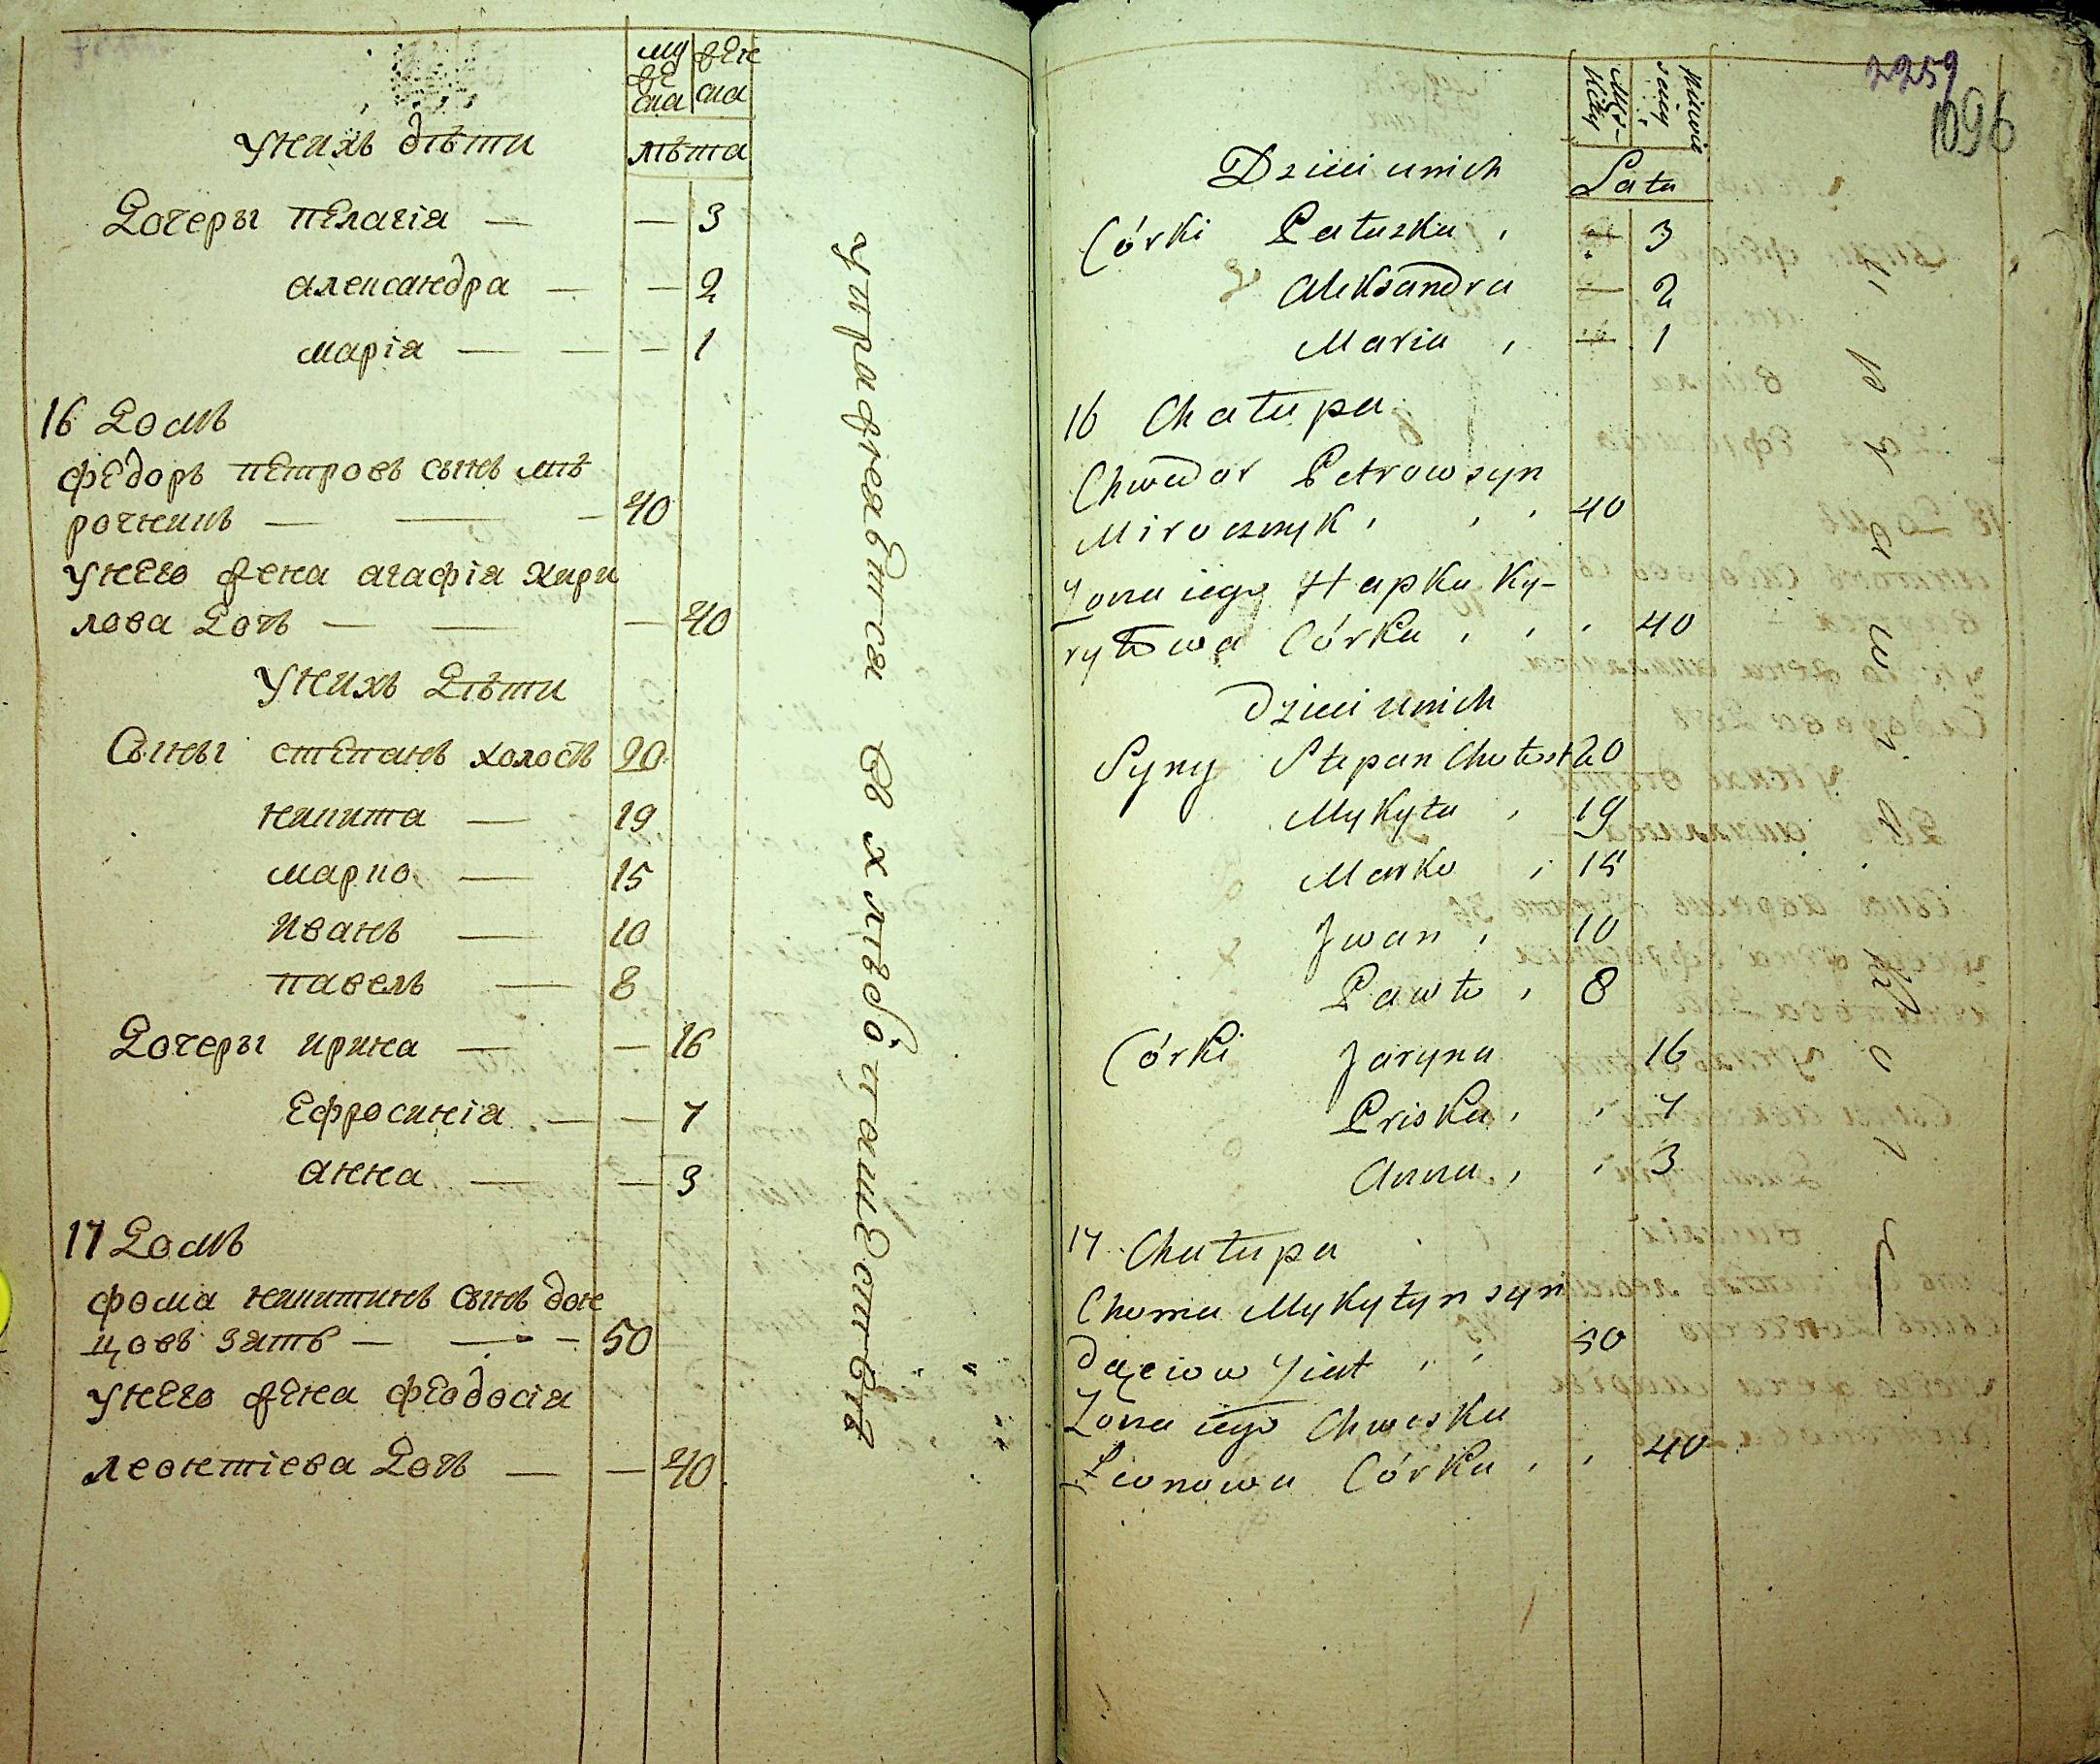 му же ска
жен ска
лѣта
У нихъ дѣти
Дочеры пелагія — — 3
александра — — 2
марія — — — 1
16 Домъ
федоръ петровъ сынъ мѣ
рочникъ — — — 40
У него жена агафія Кири
лова Дочь — — — 40
У нихъ Дѣти
Сыны степанъ холостъ 20
никита — 19
марко — 15
Иванъ — 10
павелъ — 8
Дочеры ирина — — 16
Ефросинія — — 7
анна — — 3
17 Домъ
фома никитинъ сынъ дон
цовъ зять — — — 50
У него жена феодосія
леонтіева Дочь — — 40
упражняется въ хлѣбопашествѣ
2259
1096
Męs-
Kiey
Lata
Dzieci u nich
Córki Pałazka , — 3
Alexandra — 2
Maria , — 1
16 Chałupa
Chwedor Petrow syn
Mirocznyk , , , 40
Żona iego Hapka Ky-
ryłowa Córka , , , 40
Dzieci u nich
Syny Stepan Chołost 20
Mykyta , 19
Marko , 15
Jwan , 10
Pawło , 8
Córki Jaryna 16
Priska , , 7
Anna , , 3
17 Chałupa
Choma Mykytyn syn
, , 50
Żona iego Chweska
Leonowa Córka , , 40